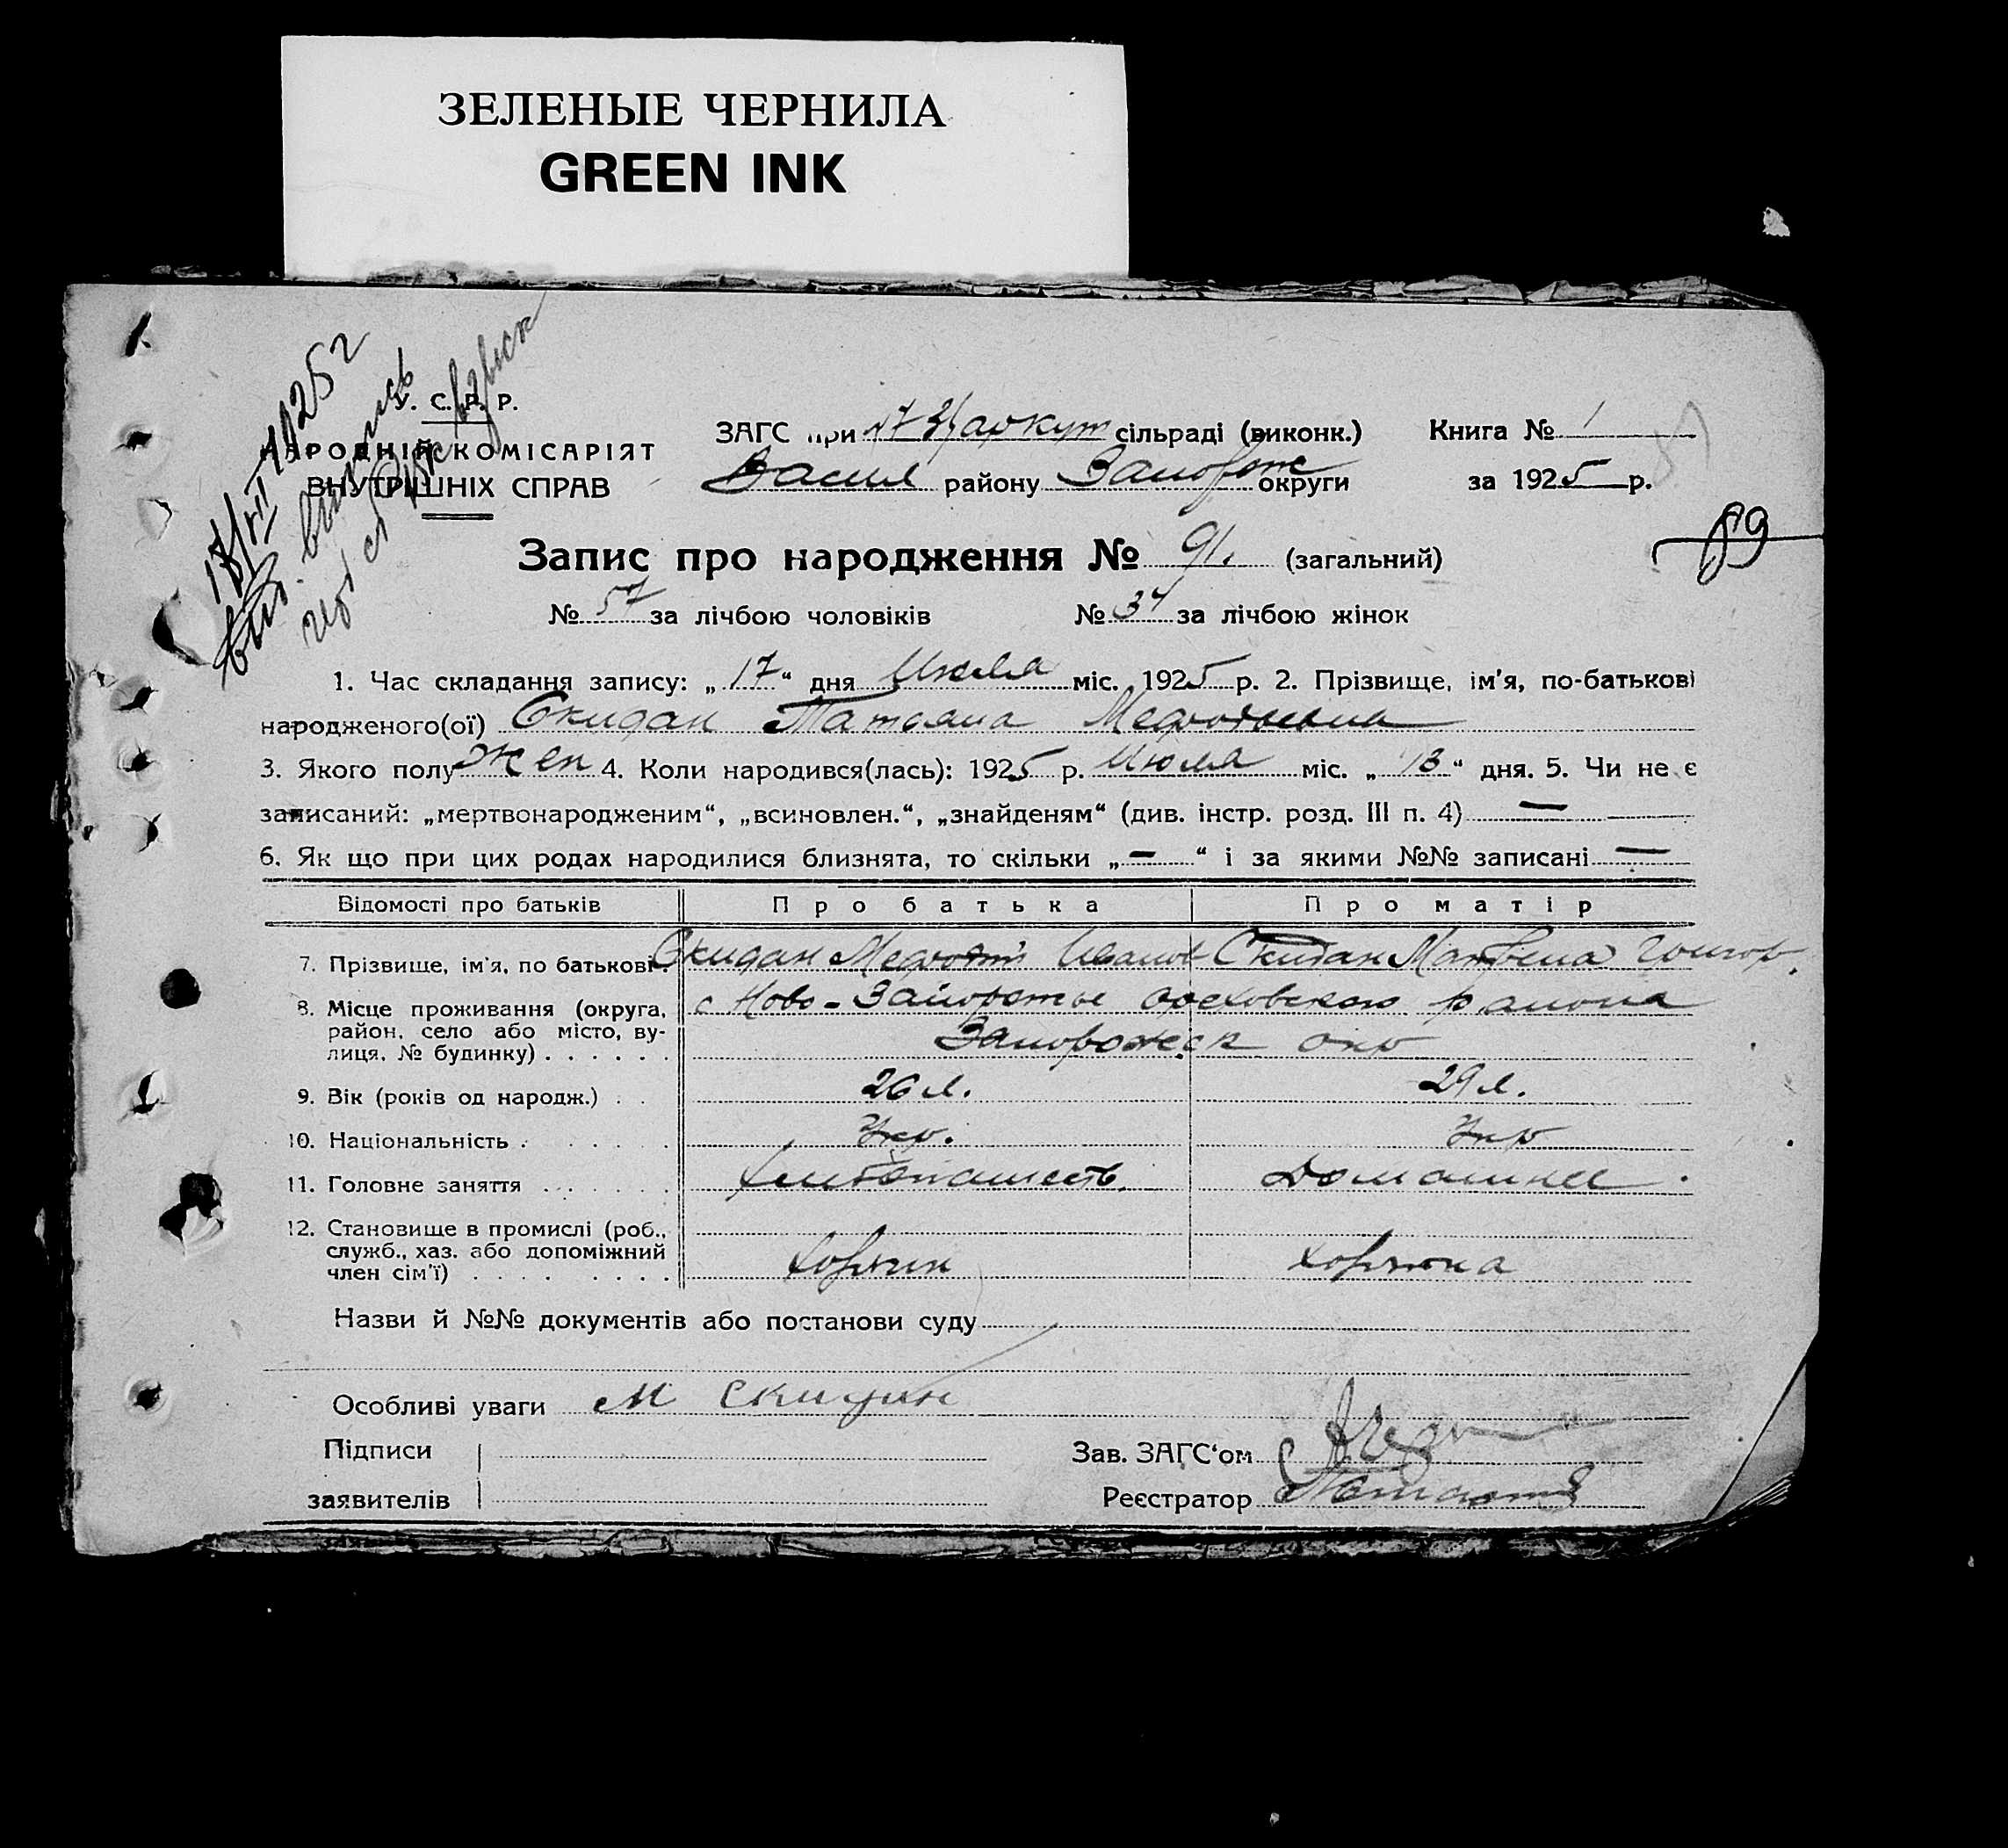 ЗЕЛЕНЫЕ ЧЕРНИЛА
GREEN INK
У. С. Р. Р.
НАРОДНІЙ КОМІСАРІЯТ
ВНУТРІШНІХ СПРАВ
ЗАГС при сільраді (виконк.) Книга № 1
Васил району Запорож округи за 1925 р.
89
Запис про народження № 91. (загальний)
№ 57 за лічбою чоловіків № 34 за лічбою жінок
1. Час складання запису: „17“ дня Июля міс. 1925 р. 2. Прізвище, ім'я, по-батькові
народженого(ої) Скидан Татьяна Мефодьевна
3. Якого полу жен 4. Коли народився(лась): 1925 р. Июля міс. „13“ дня. 5. Чи не є
записаний: „мертвонародженим“, „всиновлен.“, „знайденям“ (див. інстр. розд. III п. 4) —
6. Як що при цих родах народилися близнята, то скільки „—“ і за якими №№ записані —
Відомості про батьків Про батька Про матір
7. Прізвище, ім'я, по батькові. Скидан Мефодий Иванов Скидан Григор.
8. Місце проживання (округа, район, село або місто, вулиця, № будинку) . . . . . . с Ново-Запорожье Ореховского района
Запорожск окр
9. Вік (років од народж.) . . 26 л. 29 л.
10. Національність . . . . . . Укр. Укр
11. Головне заняття . . . . . . Хлебопашеств. Домашнее
12. Становище в промислі (роб., служб., хаз. або допоміжний член сім'ї) . . . . . . . . Хозяин Хозяюка
Назви й №№ документів або постанови суду
Особливі уваги М Скидан
Підписи Зав. ЗАГС'ом
заявителів Реєстратор